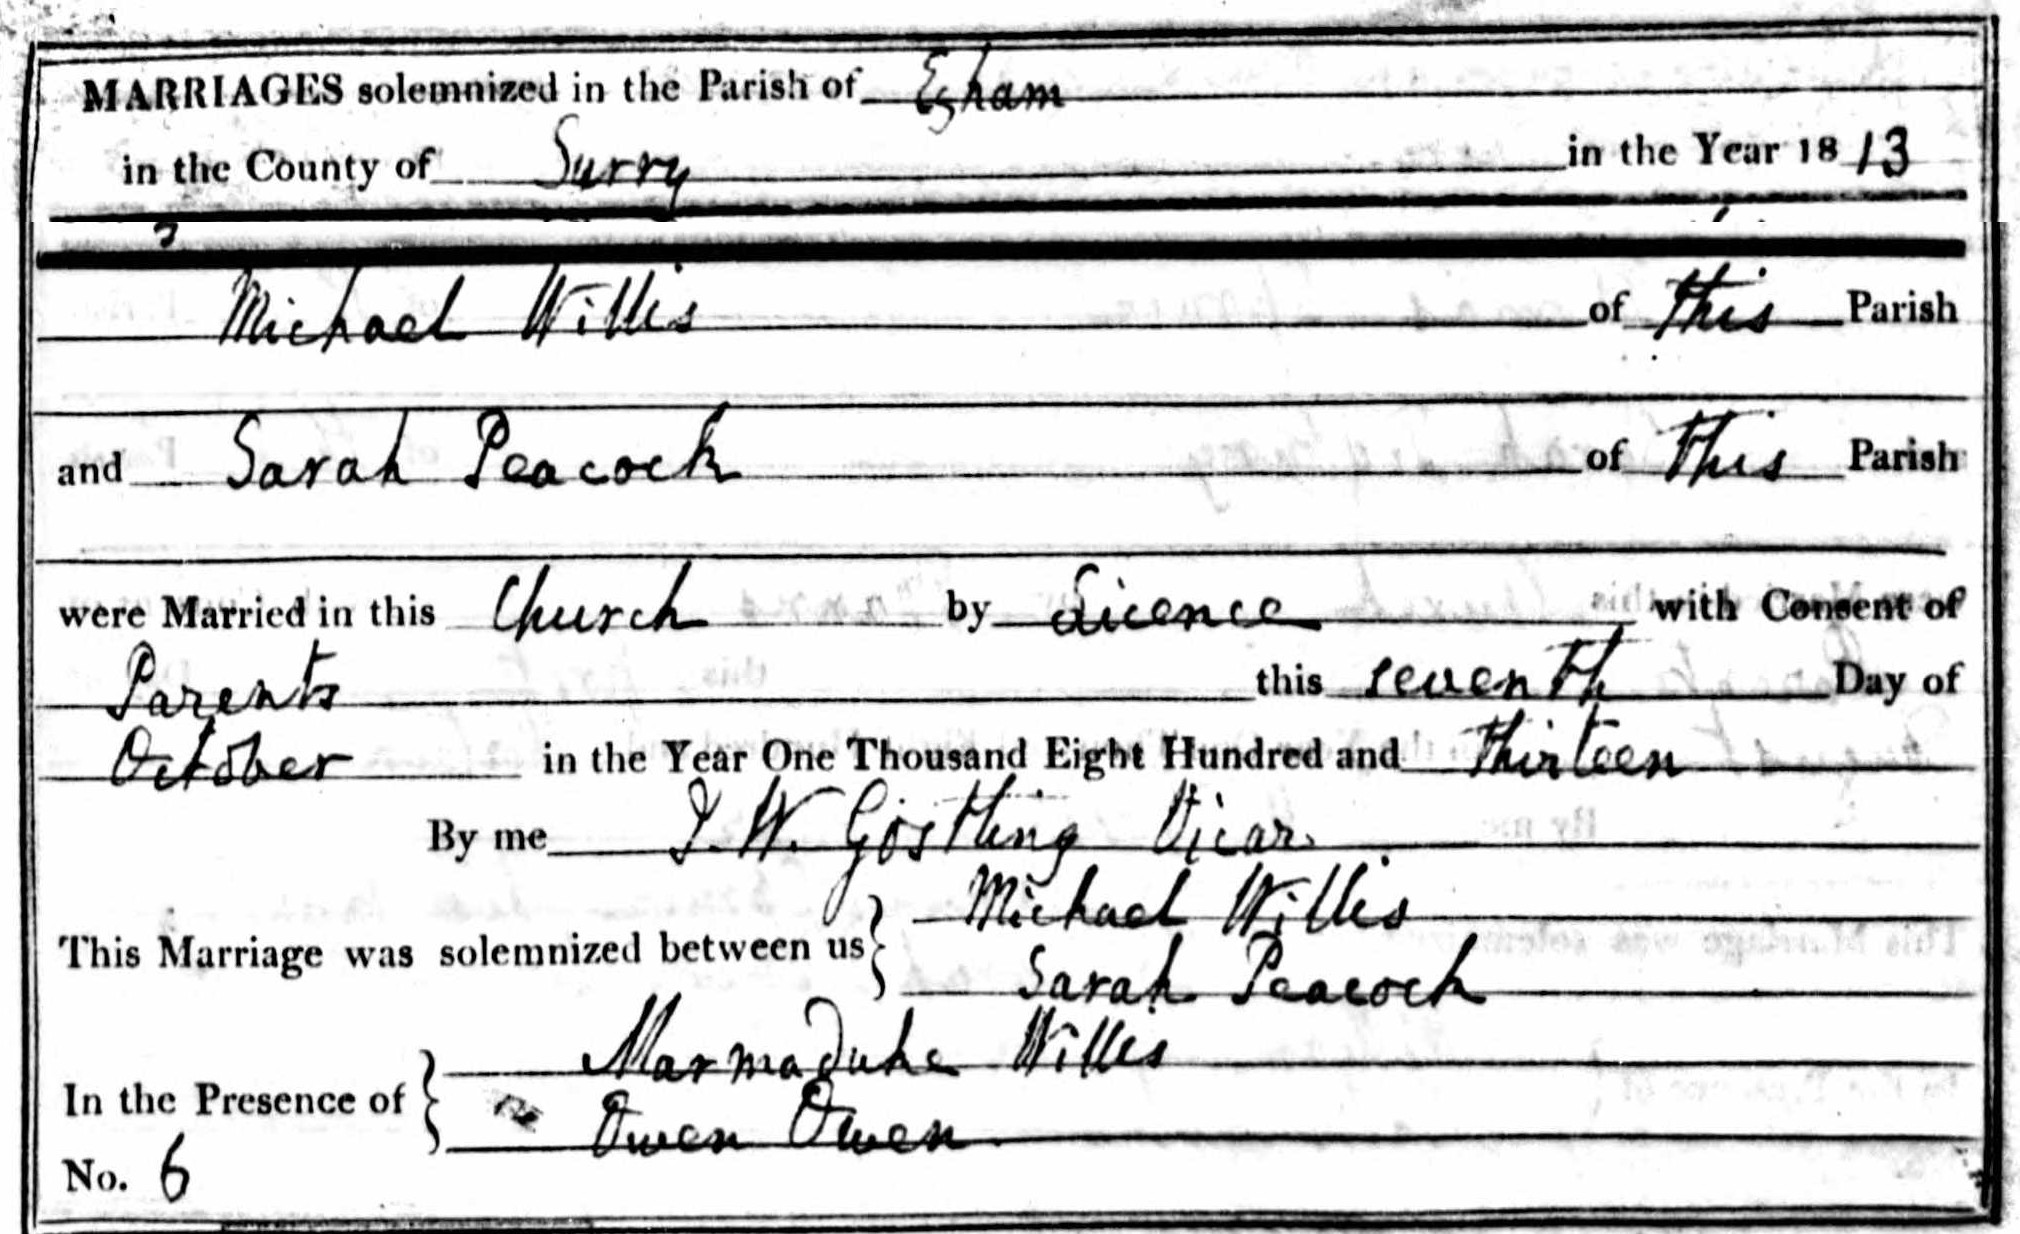 MARRIAGES solemnized in the Parish of Egham
in the County of Surry in the Year 1813
Michael Willis of this Parish
and Sarah Peacock of this Parish
were Married in this Church by Licence with Consent of
Parents this seventh Day of
October in the Year One Thousand Eight Hundred and Thirteen
By me J. W. Gostling Vicar.
This Marriage was solemnized between us { Michael Willis
Sarah Peacock
In the Presence of { Marmaduke Willis
Owen Owen
No. 6